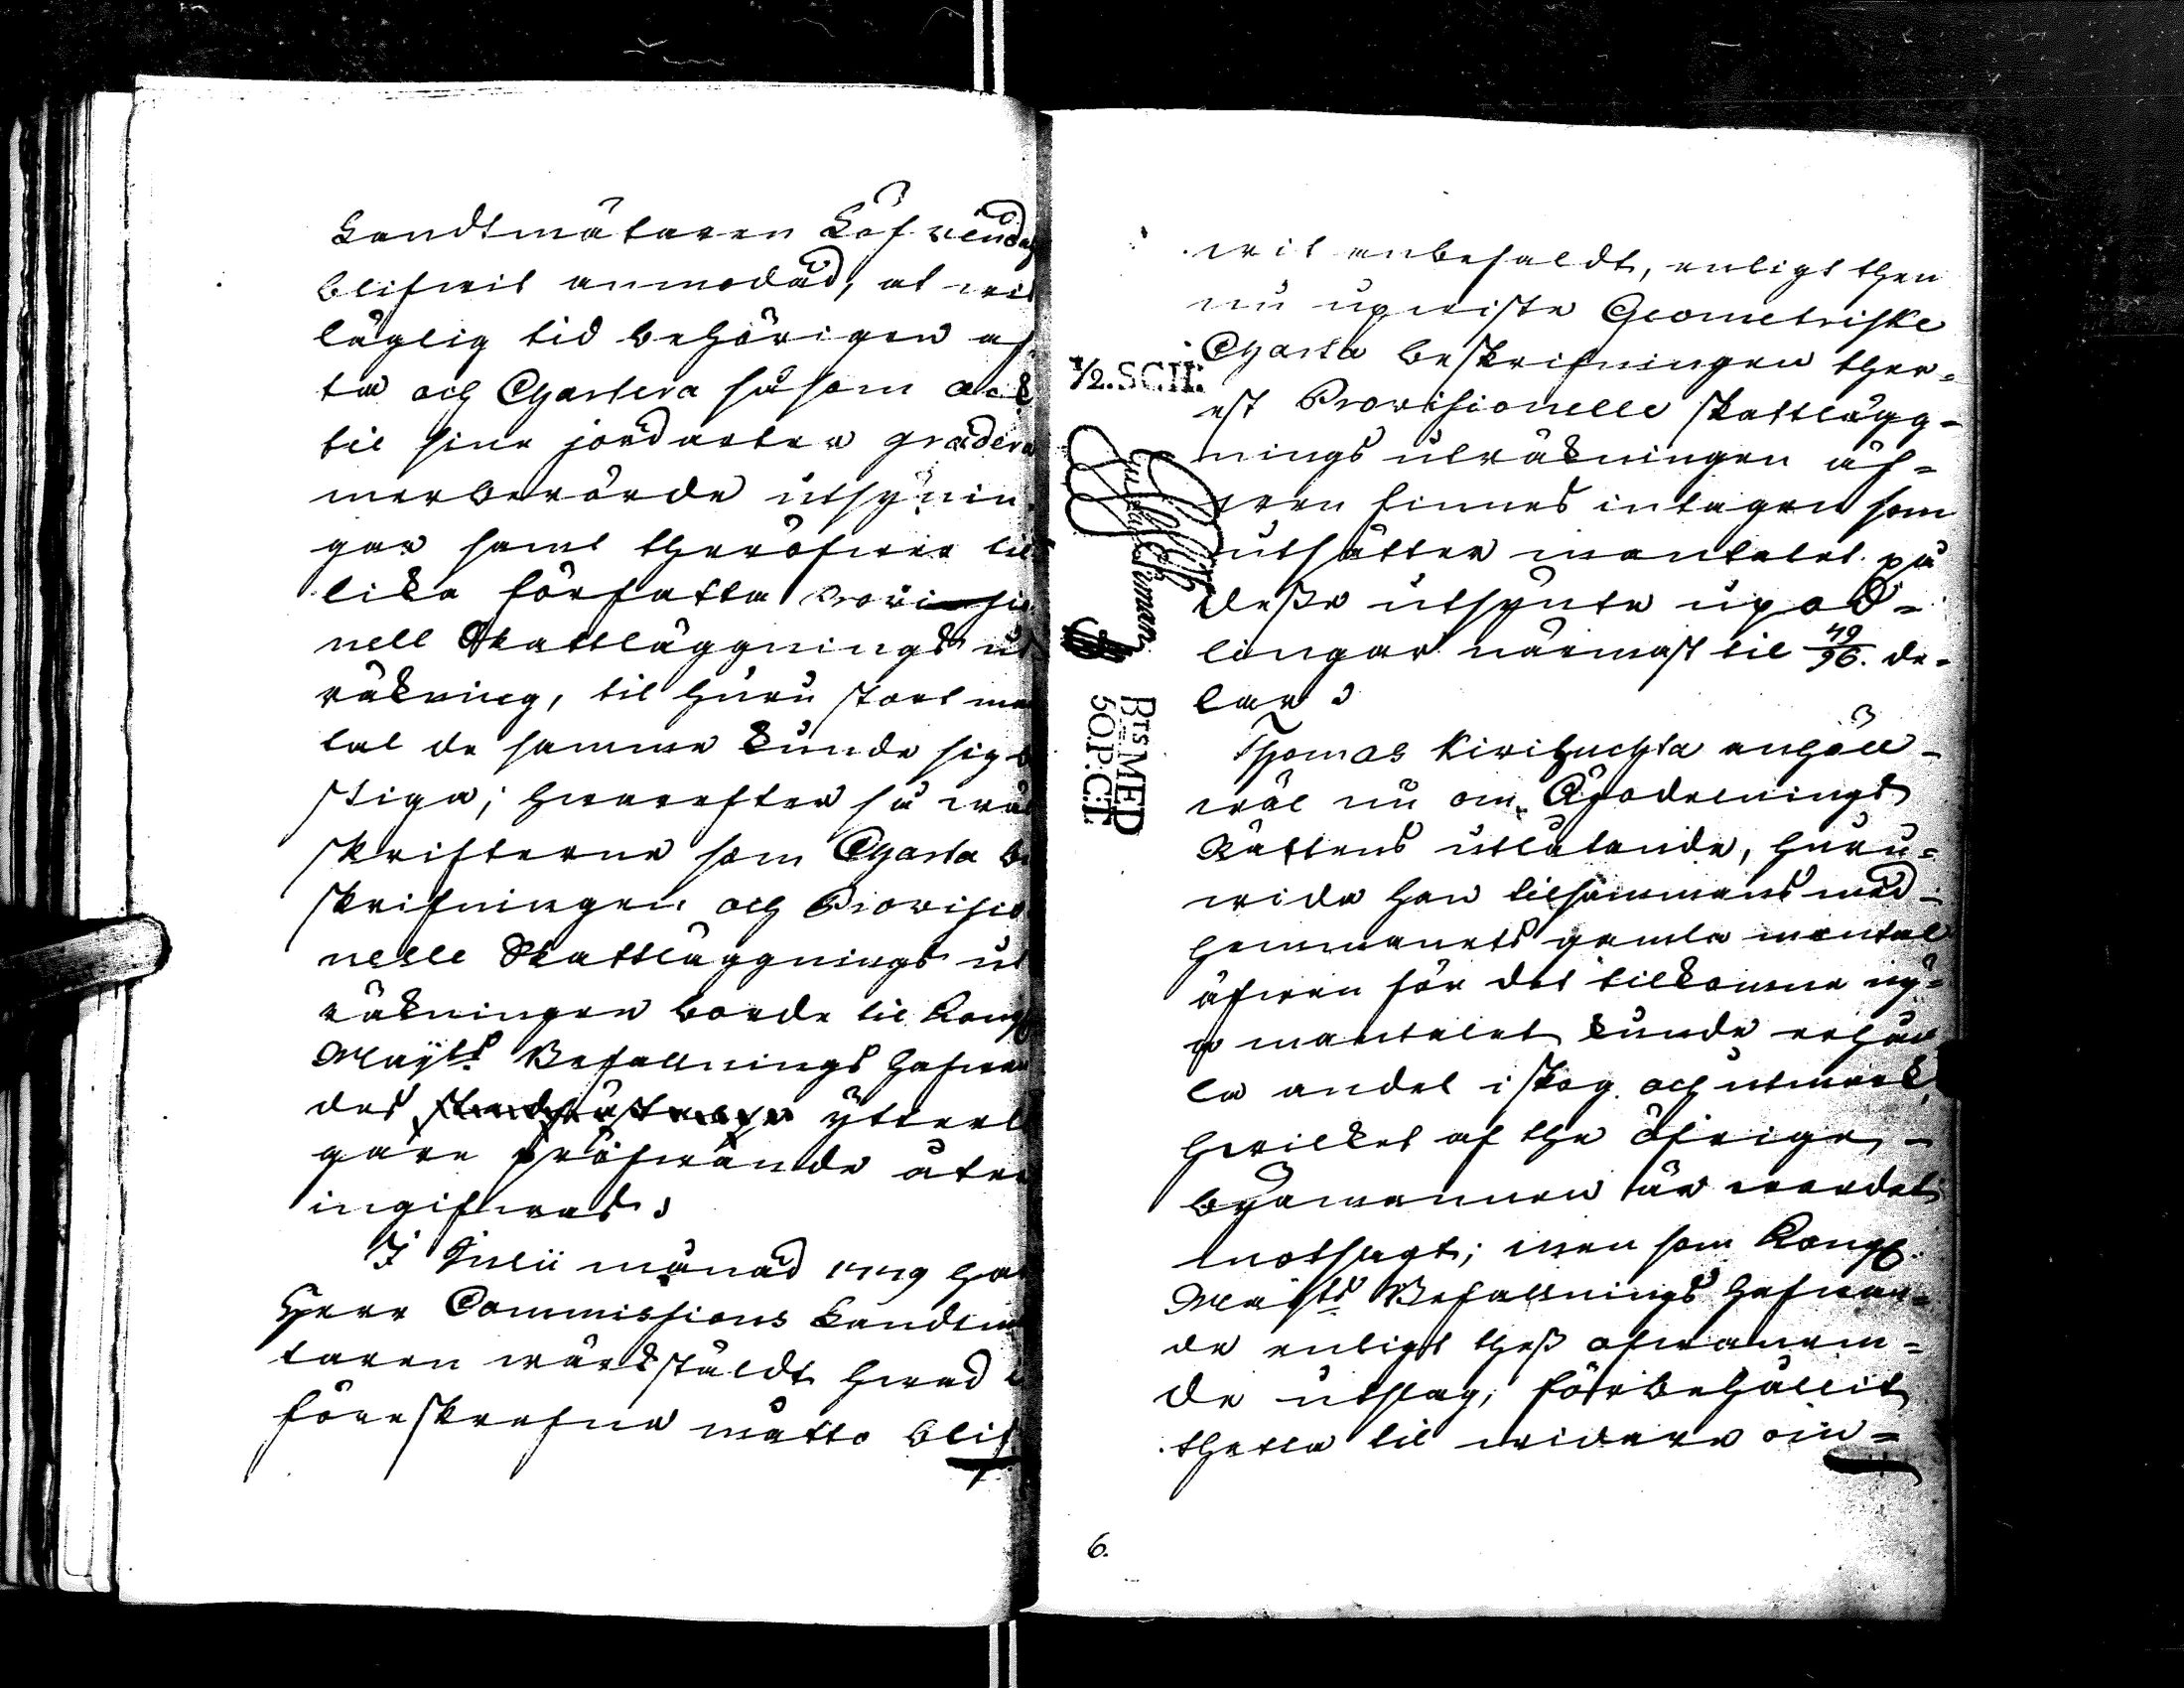 Landtmätaren Löf
blifwit anmodad, at wid
läglig tid behörigen af
ta och Chartera såsom ock
til sine jordarter gradera
merberörde utsynin
gar samt theröfwer til
lika författa Provisio
nell Skattläggnings ut
räkning, til huru stort man
tal de samme kunde sig be
stiga; hwarefter så wäl
skrifterne som Charta be
skrifningen och Provisio
nelle Skattläggnings ut
räkningen borde til Kongl
Mayts Befallnings hafwan
des ytterl
gare pröfwande åter
ingifwas.
I Julii månad 1779 har
Herr Commissions Landtmä
taren wärkstäldt hwad i
föreskrefne motto blif
wit anbefaldt, enligt then
nu upwiste Geometriske
Charta beskrifningen ther-
est Provisionelle skattlägg-
nings uträkningen äf-
wen finnes intagen som
utsätter mantalet på
desse utsynte upod-
lingar närmast til 49/96. de-
lar.
Thomas Kirihuchta anhöll
wäl nu om Ägodelnings
Rättens utlåtande, huru-
wida han tilsammans med
hemmanets gamla mantal
äfwen för det tilkomne ny-
a mantalet kunde erhål
la andel i skog och utmark,
hwilket af the öfrige
byamännen är wordet
motsagt; men som Kongl.
Mayts Befallnings hafwan-
de enligt thess ofwannem-
de utslag, förbehållit
thetta til widare om-
1/2. SCH:
BTS MED
5OP.C.T.
6.